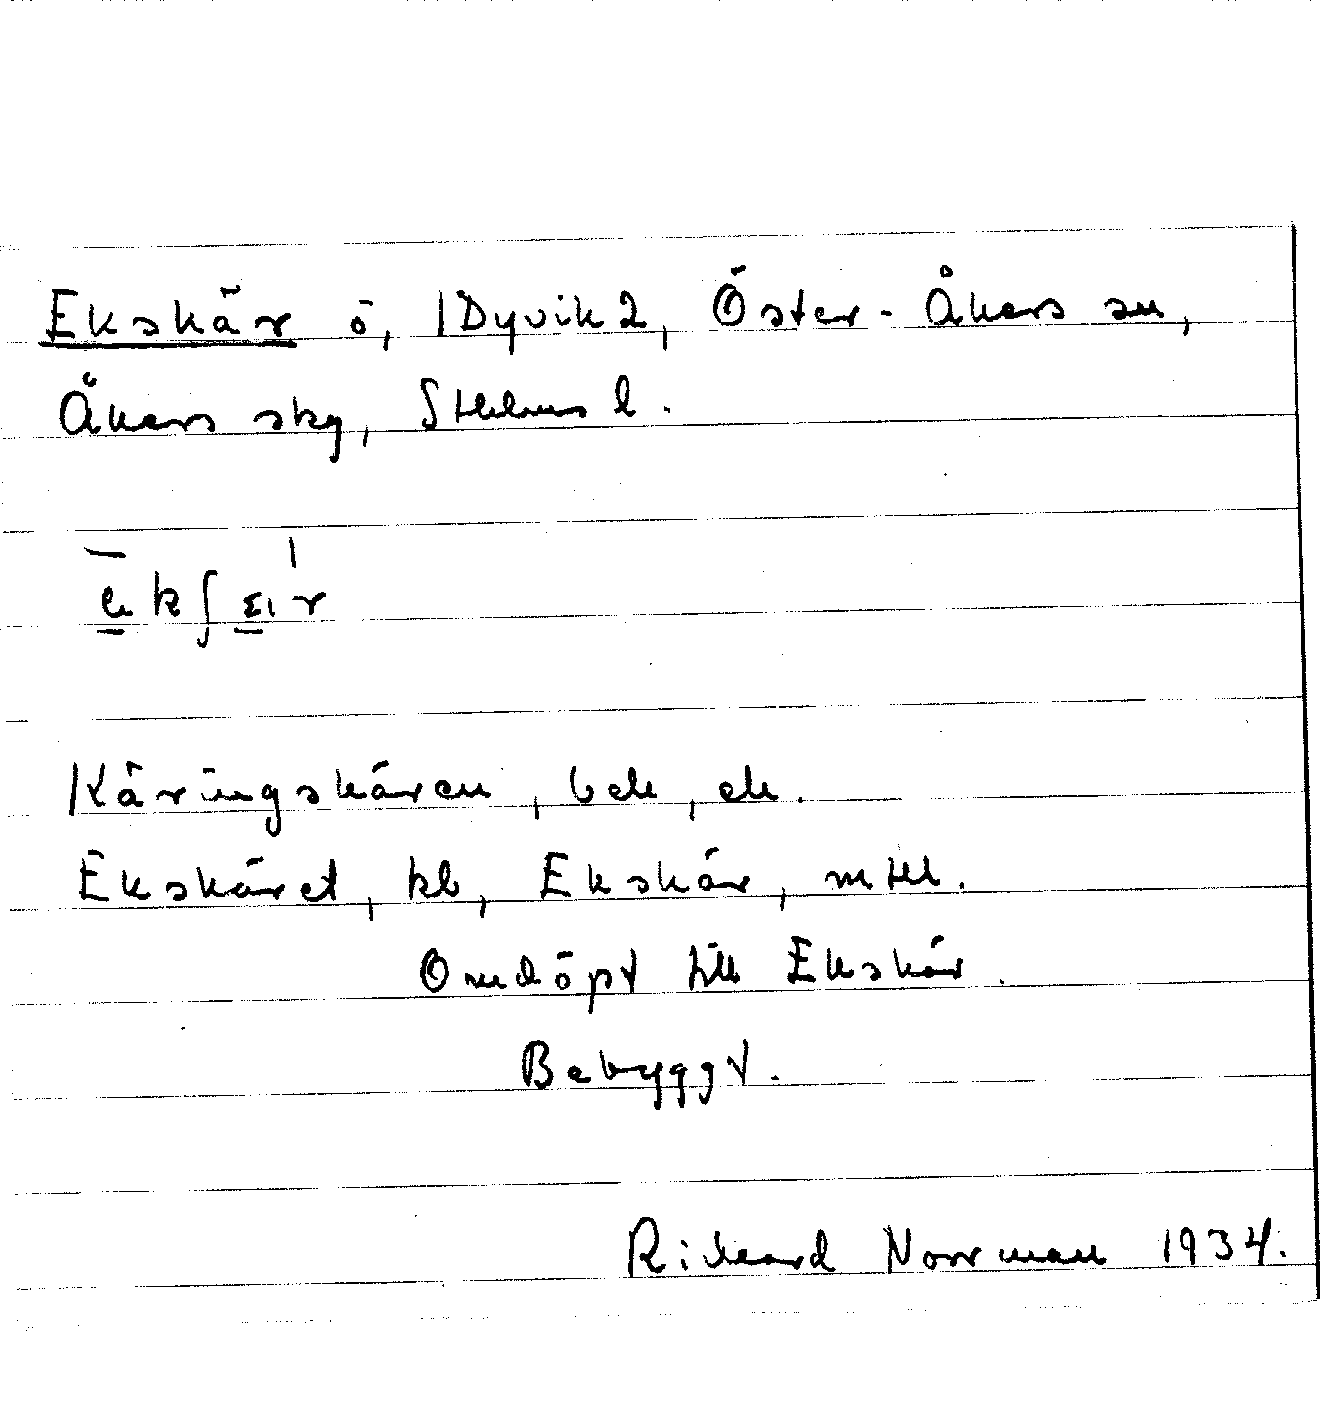 Ekskär ö, Dyvik 2, Öster-Åkers sn,
Åkers skg, Sthlms l.
Käringskären, bek, ek.
Ekskäret, kb, Ekskär, mtll.
Omdöpt till Ekskär.
Bebyggt.
Rickard Norrman 1934.